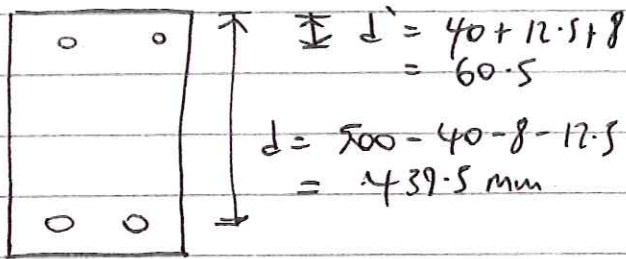 d' = 40 + 12.5 + 8
= 60.5
d = 500 - 40 - 8 - 12.5
= 439.5 mm